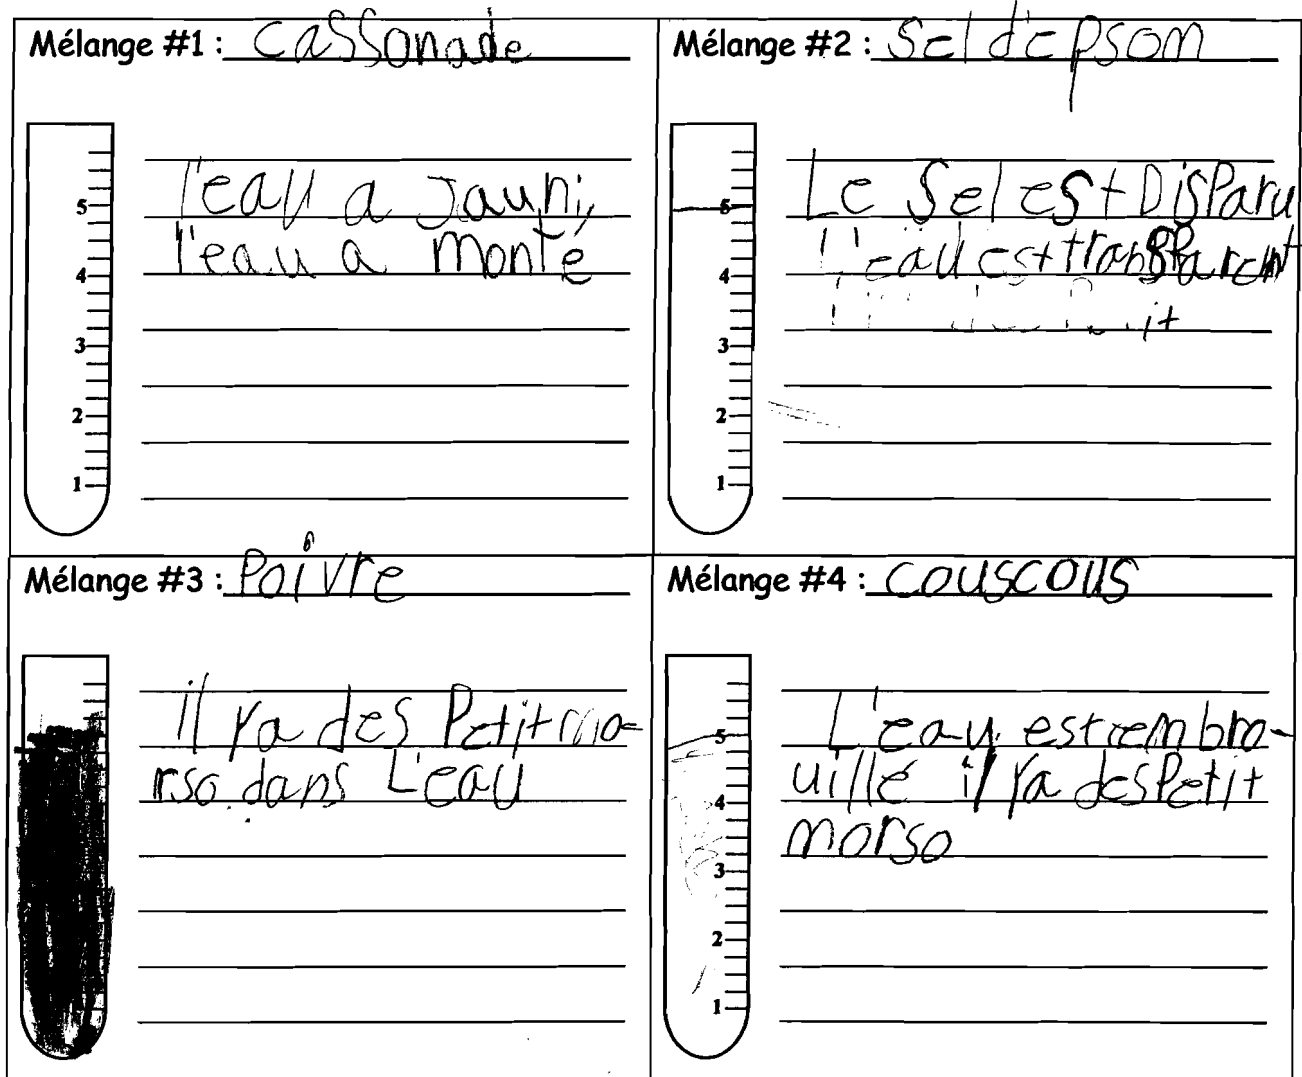 Mélange #1 : cassonade
l'eau a Jauni,
l'eau a monté
5
4
3
2
1
Mélange #2 : Sel d'epsom
Le Sel est DisParu
L'eau est transParent
5
4
3
2
1
Mélange #3 : Poivre
il ya des Petit mo-
rso dans L'eau
Mélange #4 : couscous
L'eau est embro-
uillé il ya des Petit
morso
5
4
3
2
1